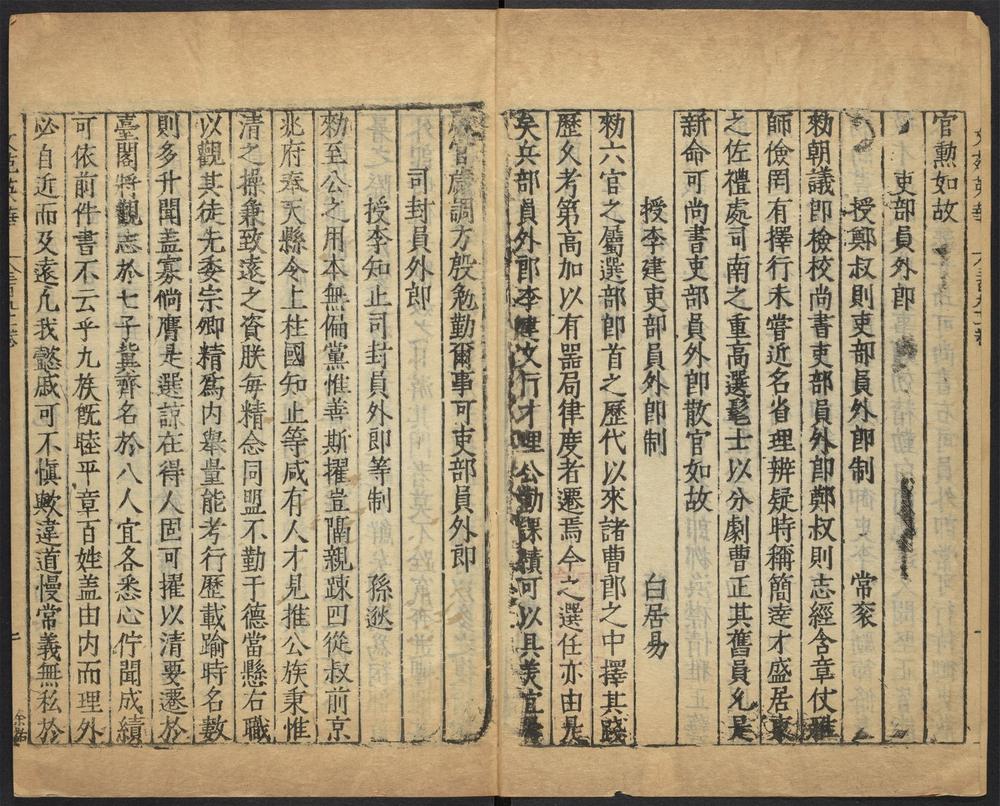 官勲如故
吏部員外郎
授鄭叔則吏部員外郎制 常衮
勑朝議郎檢校尚書吏部員外郎鄭叔則志經含章仗雅
師儉罔有擇行未嘗近名省理辨疑時稱簡達才盛居東
之佐禮處司南之重高選髦士以分劇曹正其舊員允是
新命可尚書吏部員外郎散官如故
授李建吏部員外郎制 白居易
勑六官之屬選部郎首之歷代以來諸曹郎之中擇其踐
歷久考第高加以有器局律度者遷焉今之選任亦由是
矣兵部員外郎李建文行才理公勤課績可以具美宜
官庶調方殷勉勤爾事可吏部員外郎
司封員外郎
授李知止司封員外郎等制 孫逖
勑至公之用本無偏黨惟善斯擢豈隔親踈四從叔前京
兆府奉天縣令上柱國知止等咸有人才見推公族秉惟
清之操兼致遠之資朕每精念同盟不勤于德當懸右職
以觀其徒先委宗卿精爲內舉量能考行歷載踰時名數
則多升聞盖寡倘膺是選諒在得人固可擢以清要遷於
臺閣將觀志於七子冀齊名於八人宜各悉心佇聞成績
可依前件書不云乎九族旣睦平章百姓盖由内而理外
必自近而及遠凡我懿戚可不慎歟違道慢常義無私於